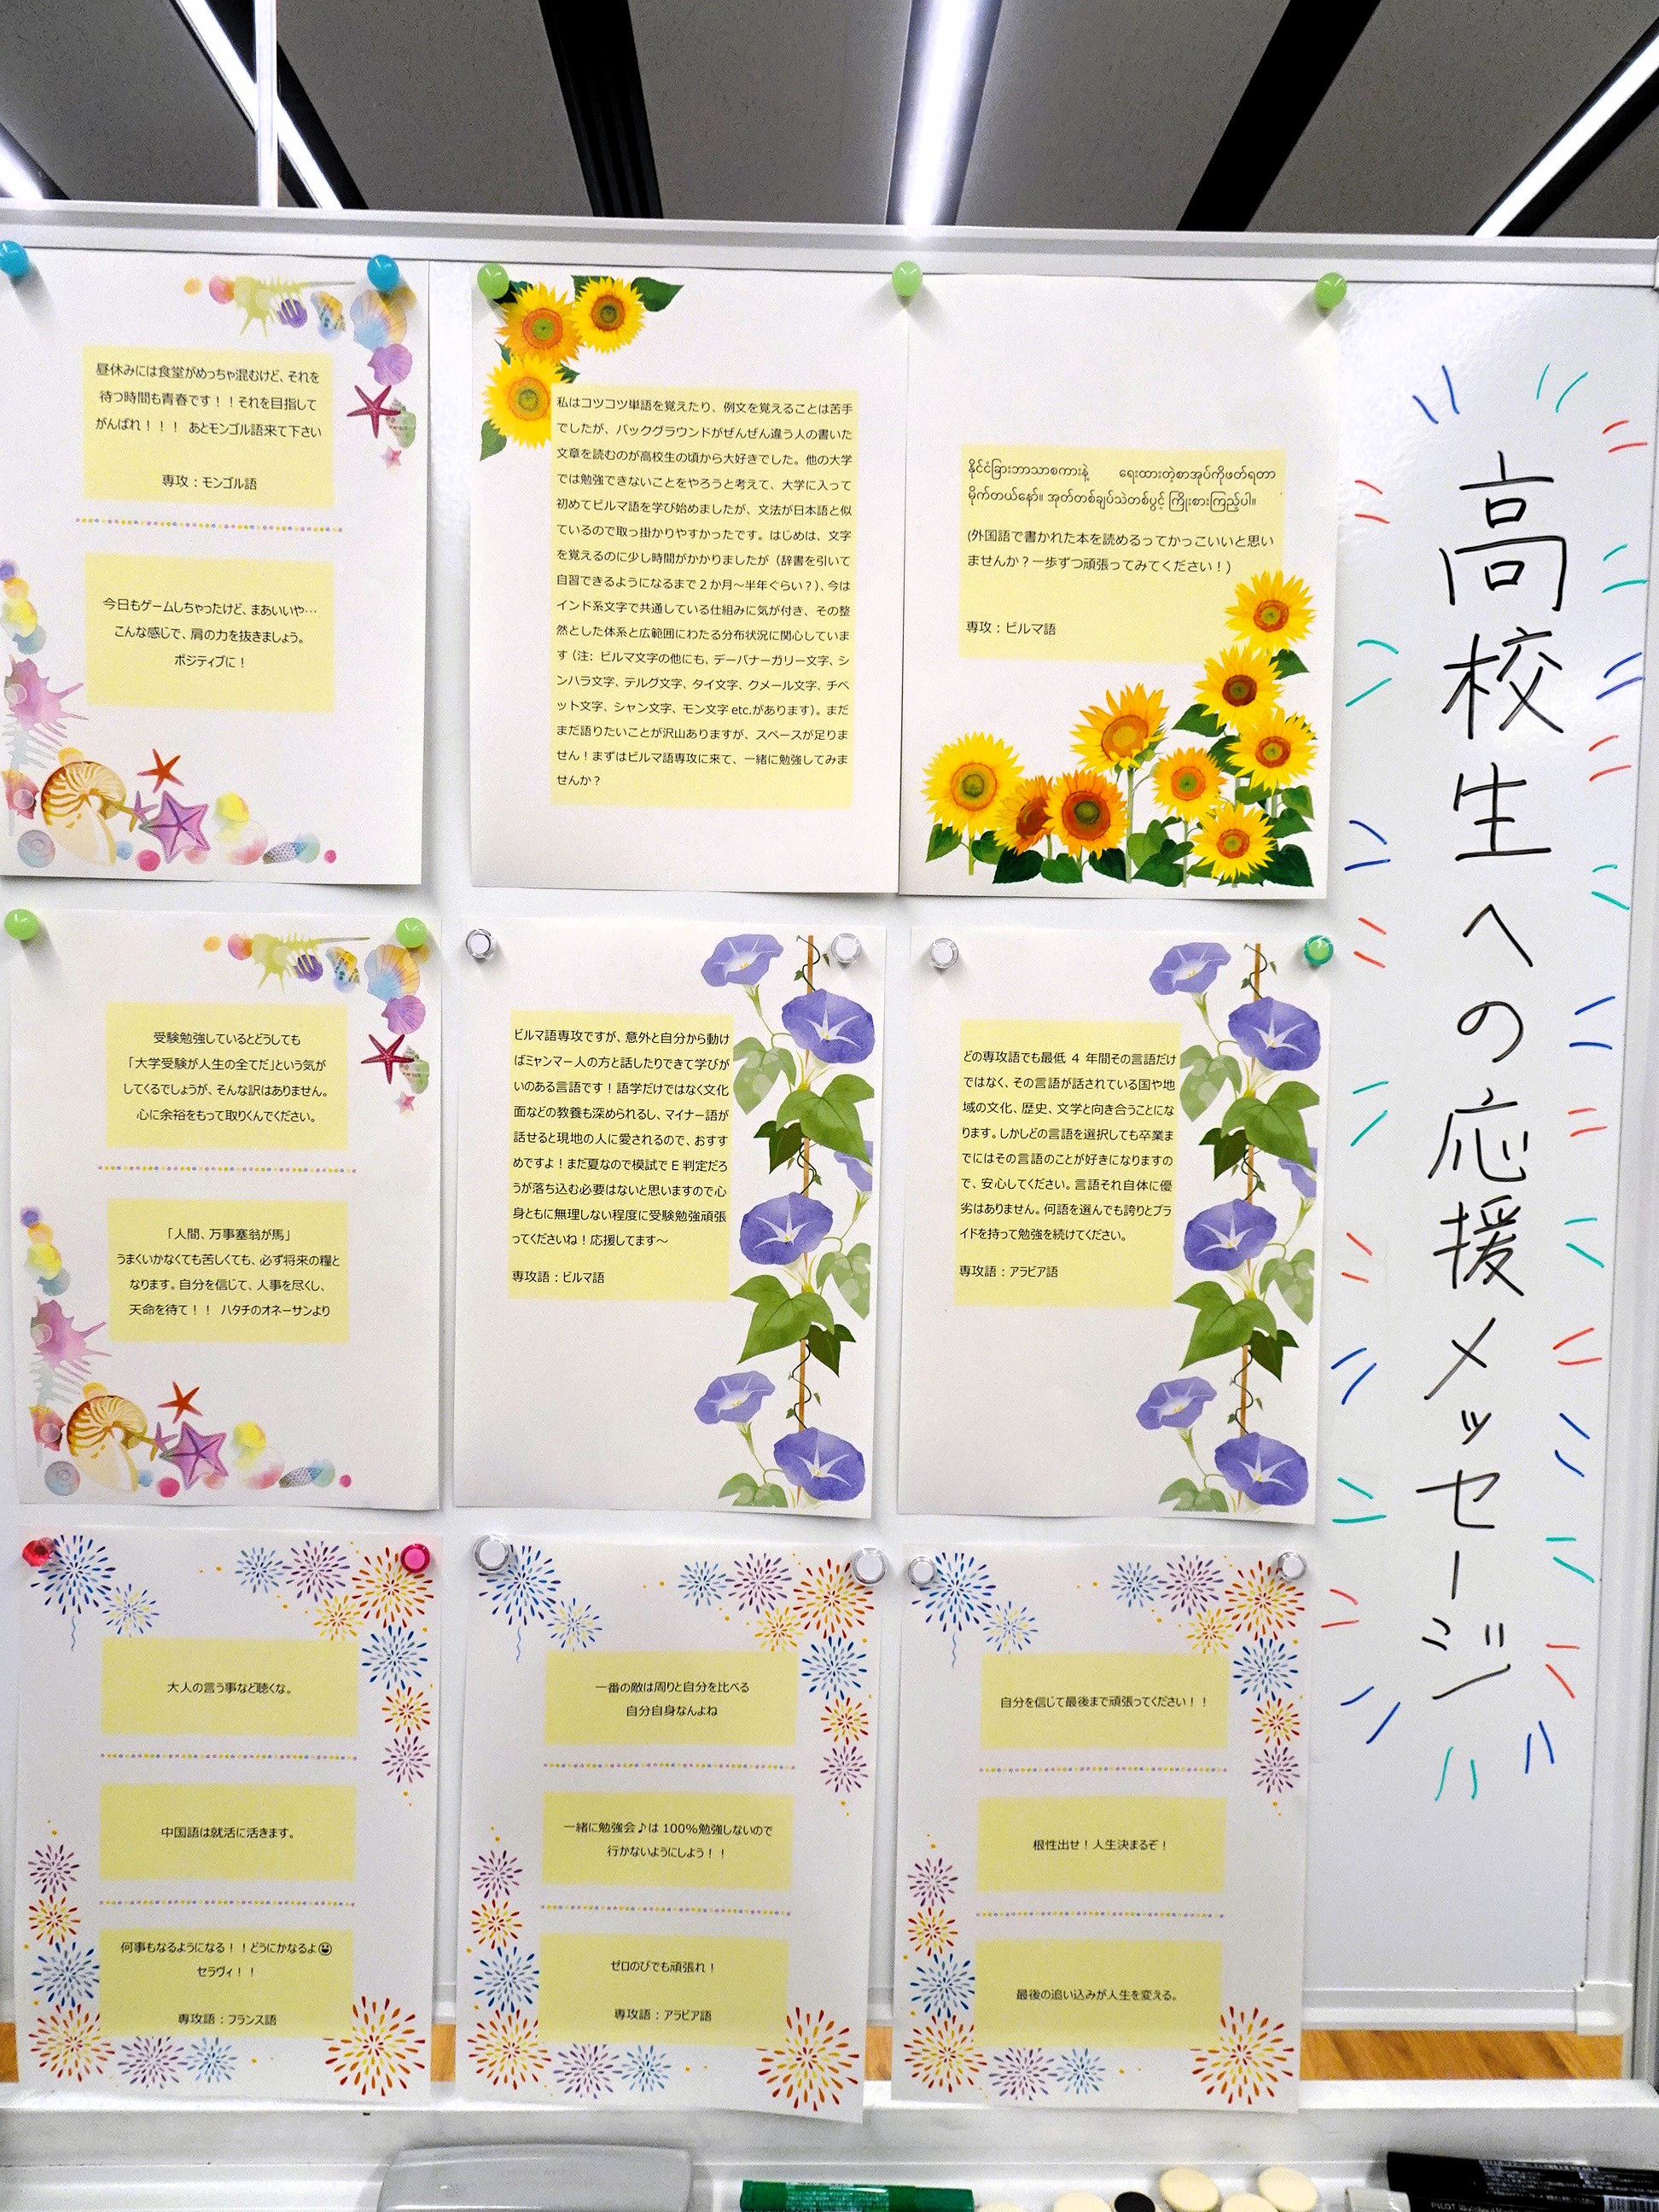 高校生への応援メッセージ
昼休みには食堂がめっちゃ混むけど、それを
待つ時間も青春です！！それを目指して
がんばれ！！！ あとモンゴル語来て下さい
専攻：モンゴル語
今日もゲームしちゃったけど、まあいいや…
こんな感じで、肩の力を抜きましょう。
ポジティブに！
私はコツコツ単語を覚えたり、例文を覚えることは苦手
でしたが、バックグラウンドがぜんぜん違う人の書いた
文章を読むのが高校生の頃から大好きでした。他の大学
では勉強できないことをやろうと考えて、大学に入って
初めてビルマ語を学び始めましたが、文法が日本語と似
ているので取っ掛かりやすかったです。はじめは、文字
を覚えるのに少し時間がかかりましたが（辞書を引いて
自習できるようになるまで 2 か月～半年ぐらい？）、今は
インド系文字で共通している仕組みに気が付き、その整
然とした体系と広範囲にわたる分布状況に関心していま
す（注: ビルマ文字の他にも、デーバナーガリー文字、シ
ンハラ文字、テルグ文字、タイ文字、クメール文字、チベ
ット文字、シャン文字、モン文字 etc.があります）。まだ
まだ語りたいことが沢山ありますが、スペースが足りま
せん！まずはビルマ語専攻に来て、一緒に勉強してみま
せんか？
နိုင်ငံခြားဘာသာစကားနဲ့ ရေးထားတဲ့စာအုပ်ကိုဖတ်ရတာ
မိုက်တယ်နော်။ အုတ်တစ်ချပ်သဲတစ်ပွင့် ကြိုးစားကြည့်ပါ။
(外国語で書かれた本を読めるってかっこいいと思い
ませんか？一歩ずつ頑張ってみてください！)
専攻：ビルマ語
受験勉強しているとどうしても
「大学受験が人生の全てだ」という気が
してくるでしょうが、そんな訳はありません。
心に余裕をもって取りくんでください。
「人間、万事塞翁が馬」
うまくいかなくても苦しくても、必ず将来の糧と
なります。自分を信じて、人事を尽くし、
天命を待て！！ ハタチのオネーサンより
ビルマ語専攻ですが、意外と自分から動け
ばミャンマー人の方と話したりできて学びが
いのある言語です！語学だけではなく文化
面などの教養も深められるし、マイナー語が
話せると現地の人に愛されるので、おすす
めですよ！まだ夏なので模試で E 判定だろ
うが落ち込む必要はないと思いますので心
身ともに無理しない程度に受験勉強頑張
ってくださいね！応援してます～
専攻語：ビルマ語
どの専攻語でも最低 4 年間その言語だけ
ではなく、その言語が話されている国や地
域の文化、歴史、文学と向き合うことにな
ります。しかしどの言語を選択しても卒業ま
でにはその言語のことが好きになりますの
で、安心してください。言語それ自体に優
劣はありません。何語を選んでも誇りとプラ
イドを持って勉強を続けてください。
専攻語：アラビア語
大人の言う事など聴くな。
中国語は就活に活きます。
何事もなるようになる！！どうにかなるよ😃
セラヴィ！！
専攻語：フランス語
一番の敵は周りと自分を比べる
自分自身なんよね
一緒に勉強会♪は 100％勉強しないので
行かないようにしよう！！
ゼロのびでも頑張れ！
専攻語：アラビア語
自分を信じて最後まで頑張ってください！！
根性出せ！人生決まるぞ！
最後の追い込みが人生を変える。